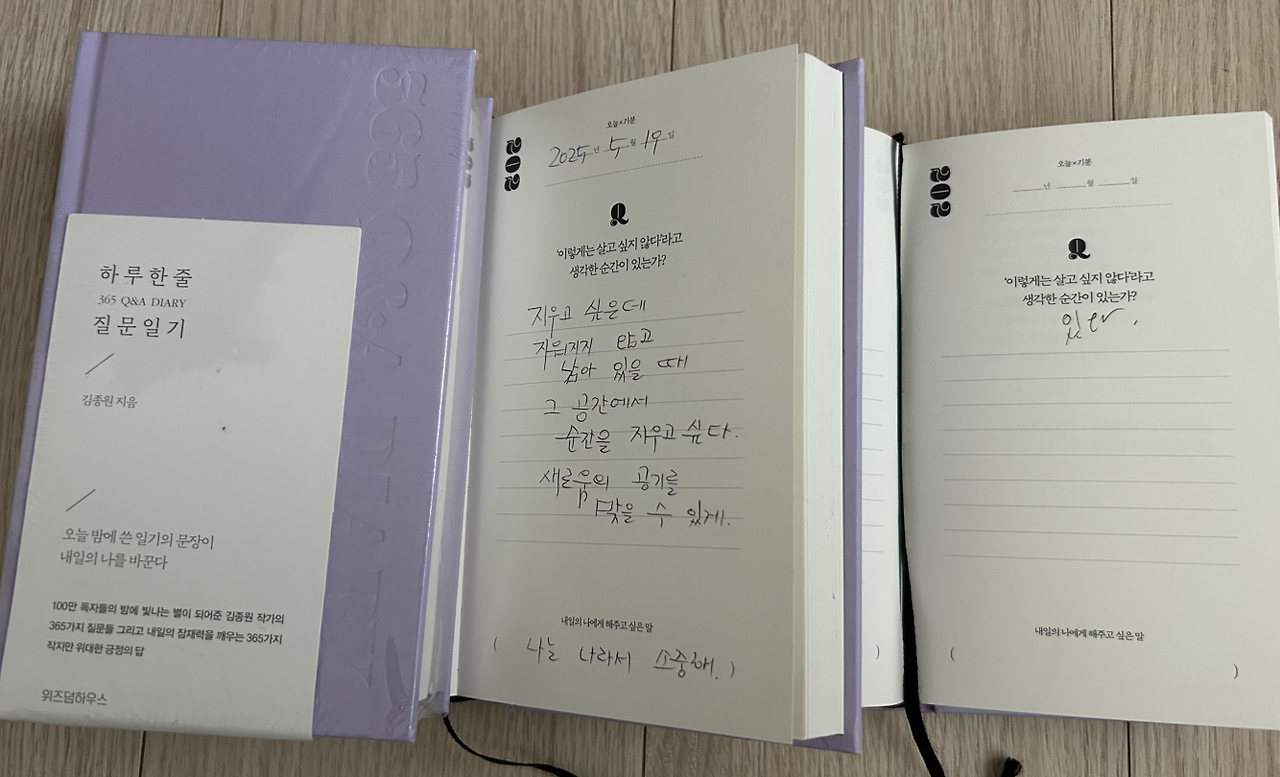 365 Q&A DIARY
하루 한 줄
365 Q&A DIARY
질문 일기
김종원 지음
오늘 밤에 쓴 일기의 문장이
내일의 나를 바꾼다
100만 독자들의 밤에 빛나는 별이 되어준 김종원 작가의
365가지 질문들 그리고 내일의 잠재력을 깨우는 365가지
작지만 위대한 긍정의 답
위즈덤하우스
202
오늘×기분
2025년 5월 19일
Q
'이렇게는 살고 싶지 않다'라고
생각한 순간이 있는가?
지우고 싶은데
지워지지 않고
남아 있을 때
그 공간에서
순간을 지우고 싶다.
새로움의 공기를
맞을 수 있게.
내일의 나에게 해주고 싶은 말
( 나는 나라서 소중해. )
)
202
오늘×기분
년 월 일
Q
'이렇게는 살고 싶지 않다'라고
생각한 순간이 있는가?
있다.
내일의 나에게 해주고 싶은 말
( )